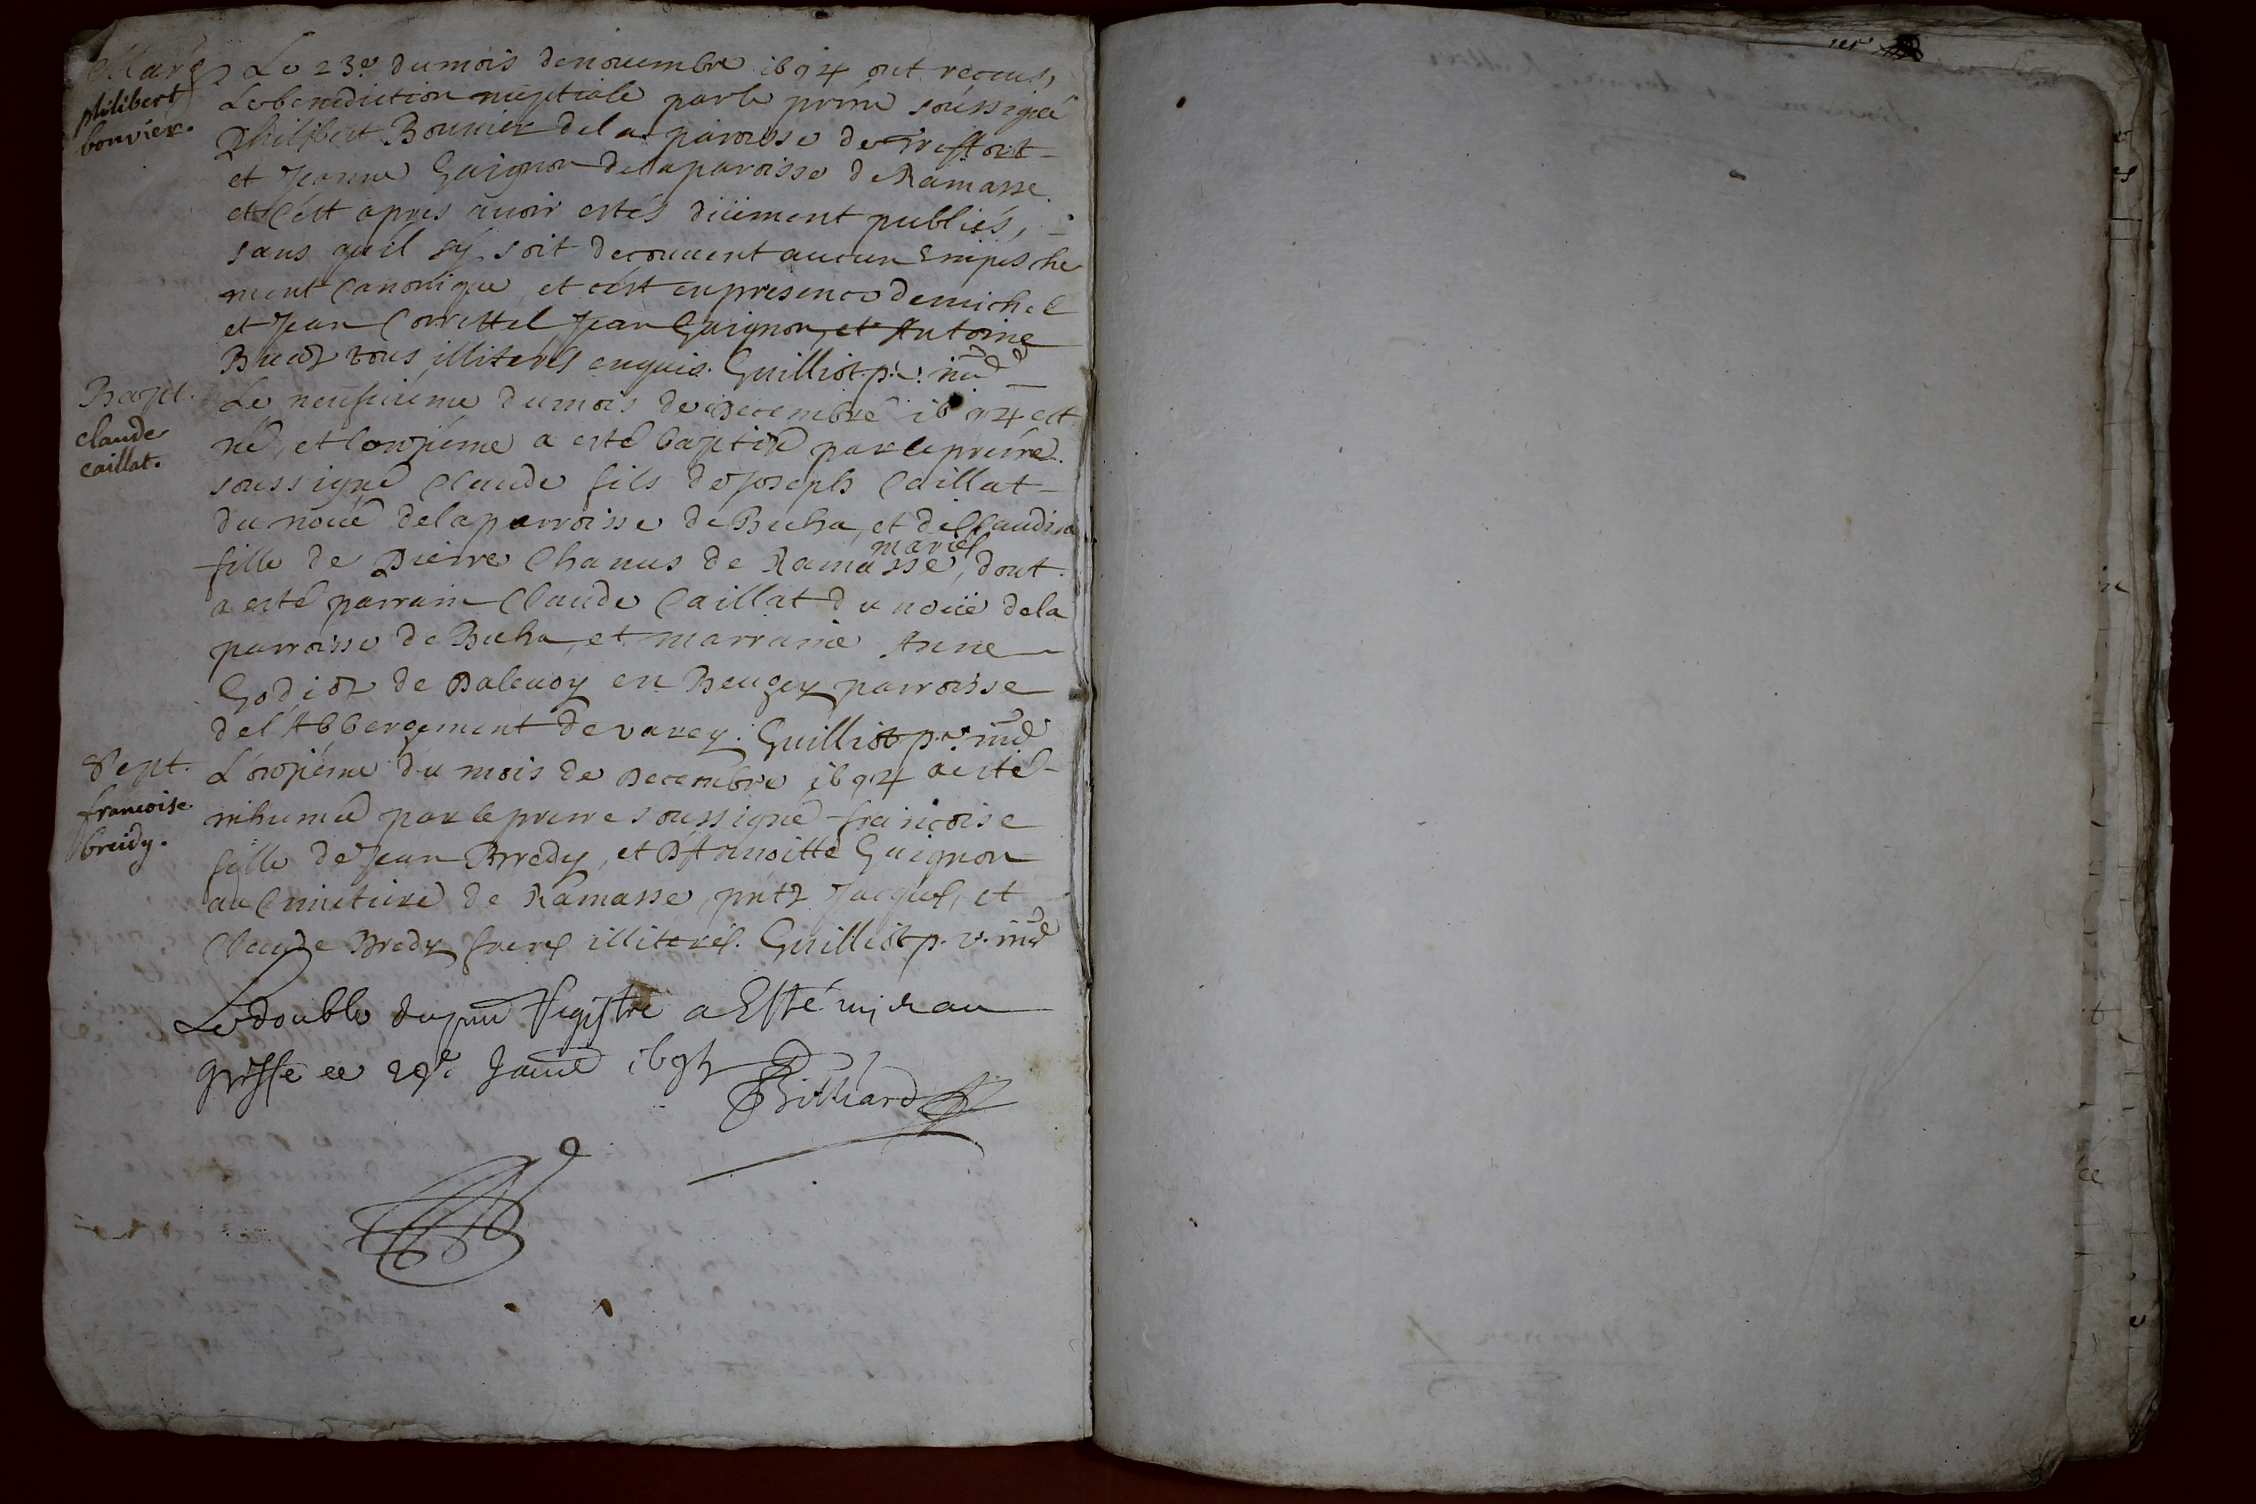 Mari.
philibert
bonvier.
Le 23e. du mois de novembre 1694 ont receus,
La benediction nuptiale par le prêtre soussigné
Philibert Bouvier de la paroisse de Treffort
et Jeanne Guignon de la paroisse de Ramasse
et c'est apres avoir estés düement publiés,
sans qu'il s'ÿ soit decouvert aucun Empesche
ment Canonique, et c'est en presence de michel
et Jean Correttel Jean Guignon, et Antoine
tous illiterés enquis. Guilliot p.
Bapt.
claude
caillat.
Le neufvième du mois de Decembre 1694 est
né, et l'onzième a esté baptisé par le prêtre
soussigné Claude fils de Joseph Caillat
du noüe de la parroisse de Buha, et de Claudine
fille de Pierre Chanus de Ramasse, mariés dont
a esté parrain Claude Caillat du noüe de la
parroisse de Buha, et marraine Anne
Godiot de Dalevoy en Beugey parroisse
de l'Abbergement de varey. Guilliot p.
Sept.
francoise
bredy.
L'onzième du mois de Decembre 1694 a esté
inhumée par le prêtre soussigné françoise
fille de Jean Bredy, et D'Annoitte Guignon
au Cimetière de Ramasse, pntz Jacques, et
Claude Bredy freres illiterés. Guilliot p.
Le double du pnt Registre a Esté mis au
greffe ce 29e Janv 1695 Billiard